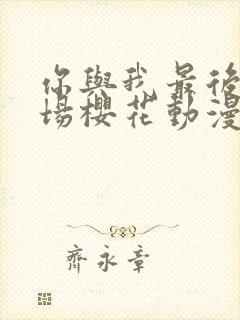 你與我最後
場櫻花動漫
齊永章